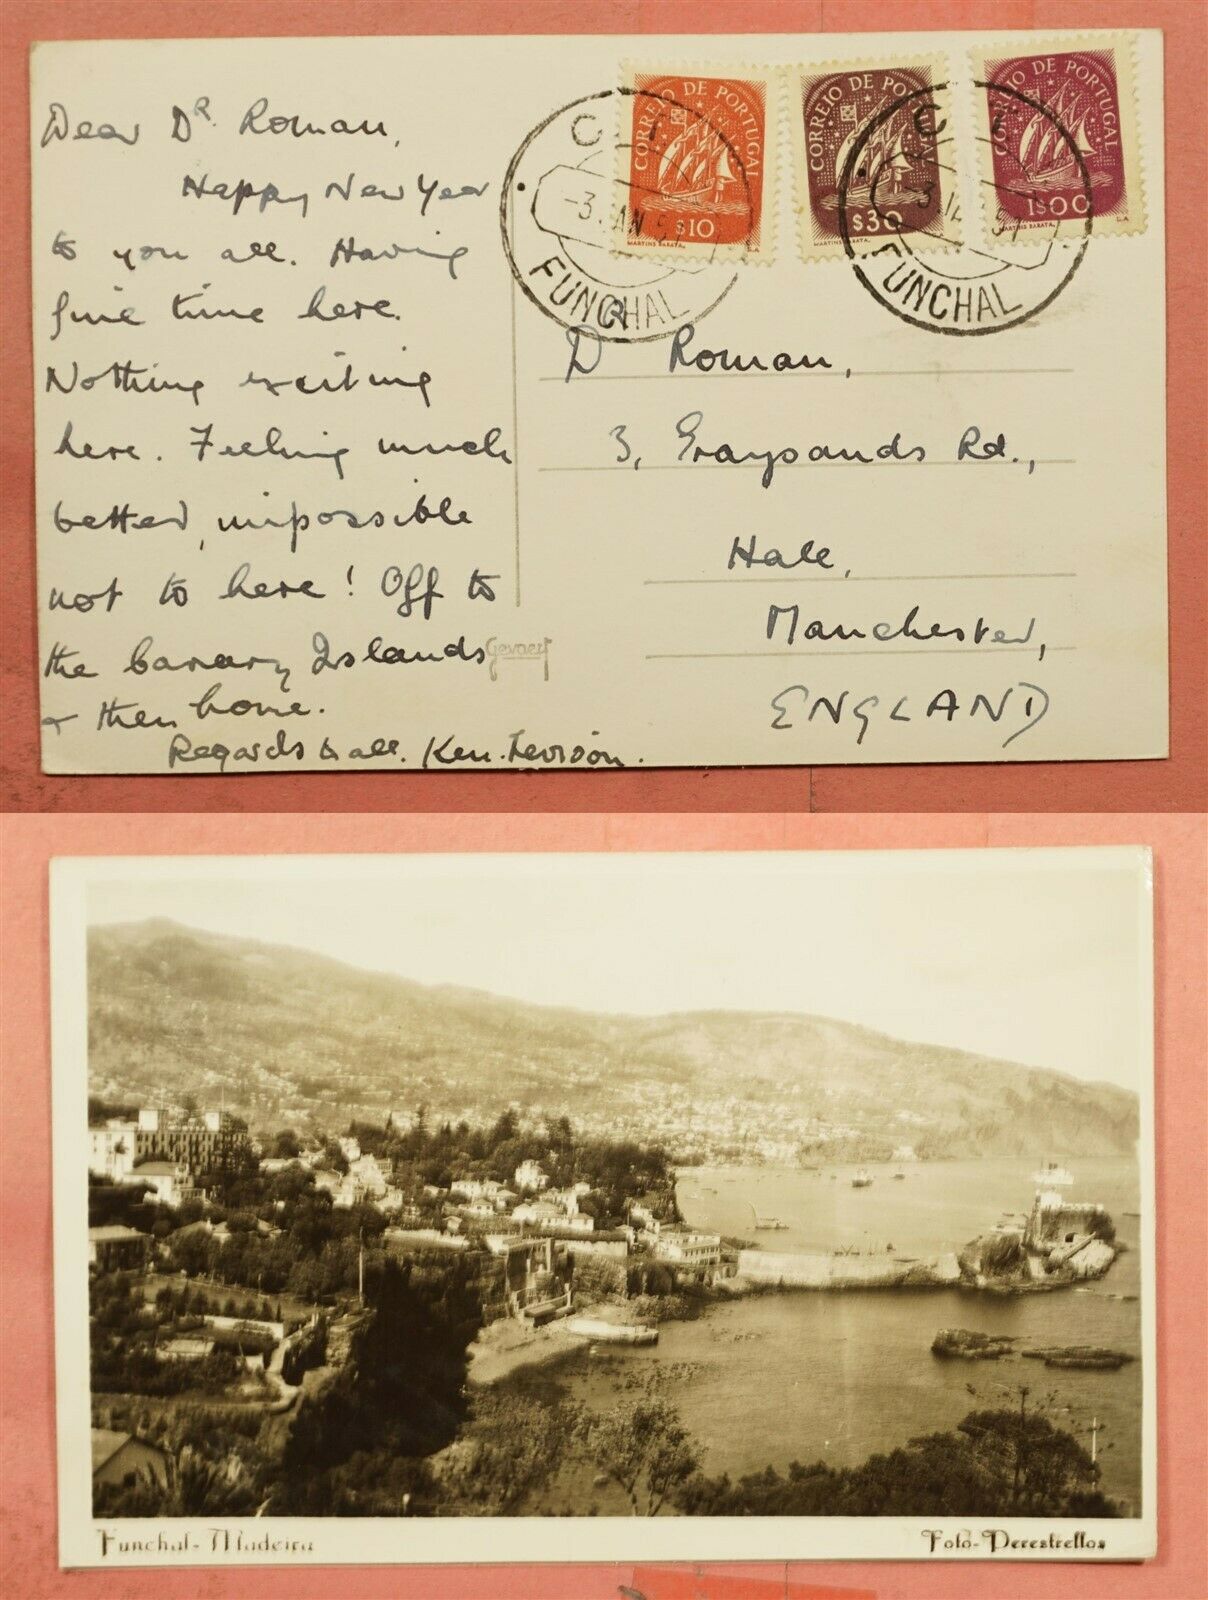 Dear Dr. Roman,
Happy New Year
to you all. Having
fine time here.
Nothing exciting
here. Feeling much
better, impossible
not to here! Off to
the Canary Islands
& then home.
Regards to all. Ken. Levison.
Gevaert
CORREIO DE PORTUGAL
$10
MARTINS BARATA.
CORREIO DE PORTUGAL
$30
MARTINS BARATA.
CORREIO DE PORTUGAL
1$00
MARTINS BARATA.
C T
-3. JAN 5
FUNCHAL
C T
-3. 51
FUNCHAL
Dr Roman,
3, Graysands Rd.,
Hale,
Manchester,
ENGLAND
Funchal-Madeira
Foto-Perestrellos